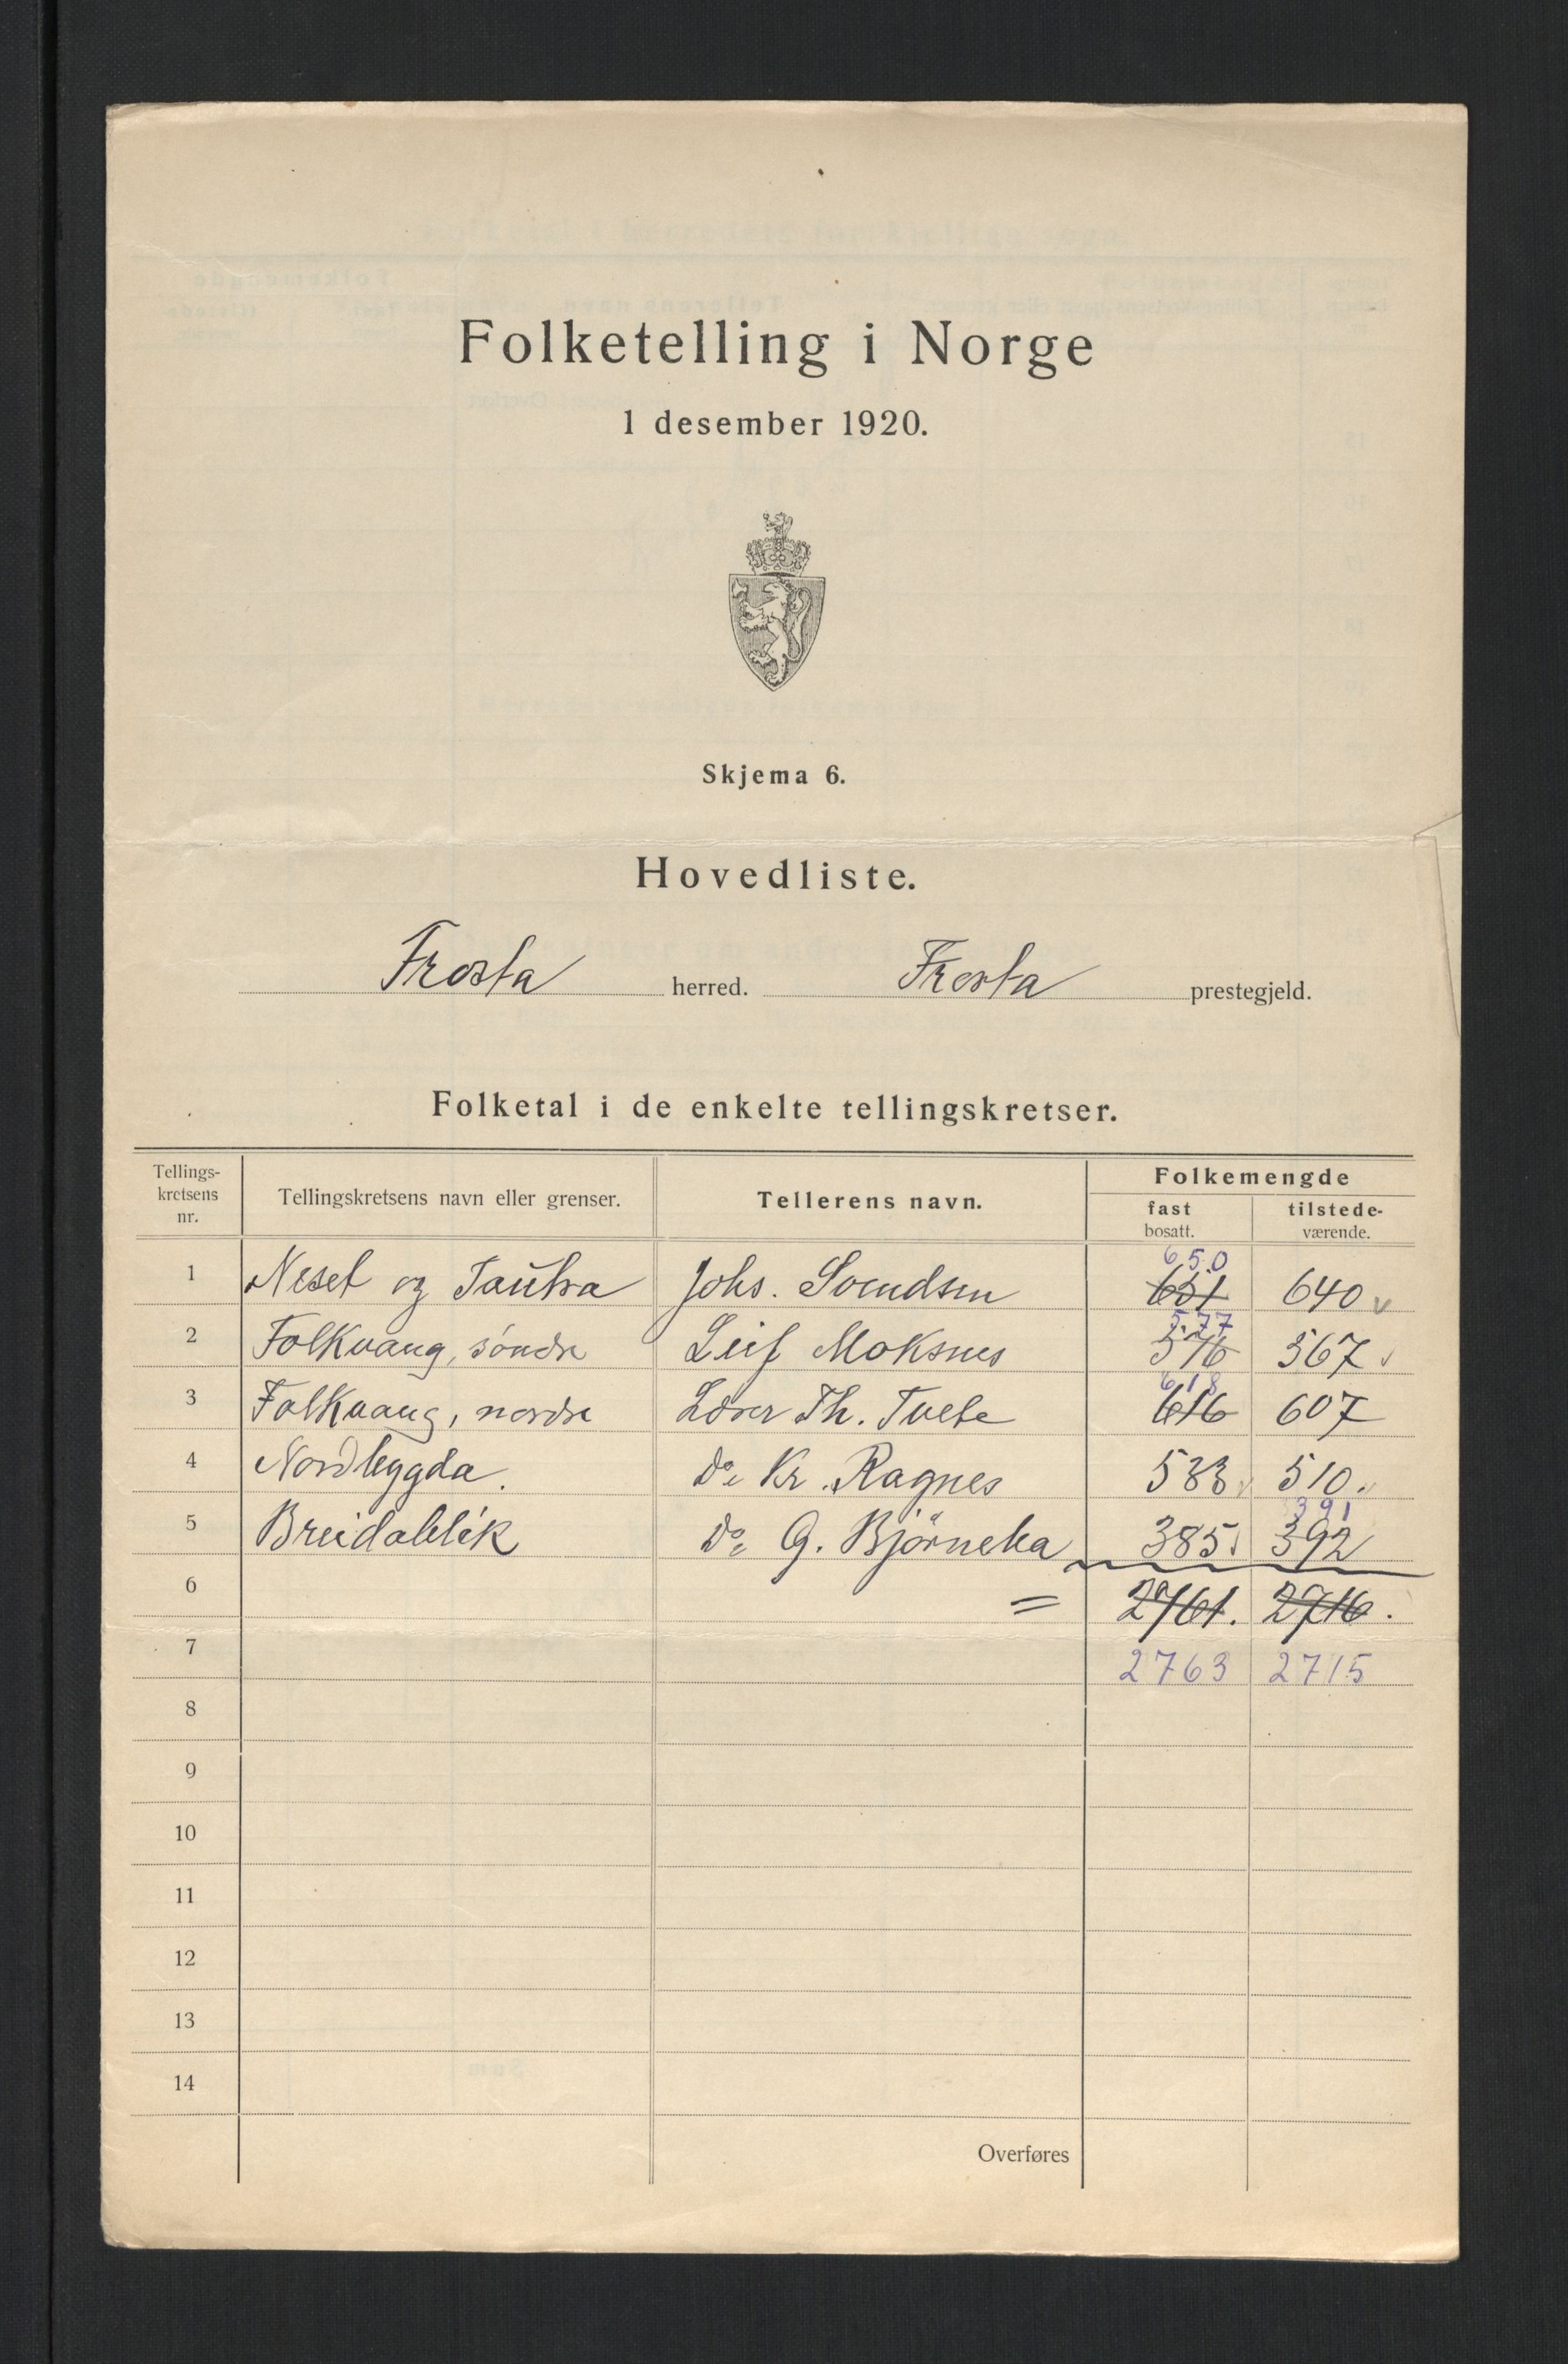 Folketelling i Norge
1 desember 1920.
Skjema 6.
Hovedliste.
Frosta herred. Frosta prestegjeld.
Folketal i de enkelte tellingskretser.
Tellings-kretsens nr. Tellingskretsens navn eller grenser. Tellerens navn. Folkemengde
fast bosatt. tilstede-værende.
650
1 Neset og Tautra Johs. Svendsen 651 640
577
2 Folkvang, söndre Leif Moksnes 576 567
618
3 Folkvang, nordre Lærer Th. Tvete 616 607
4 Nordbygda. do Kr. Ragnes 533 510.
391
5 Breidablik do G. Björneka 385 392
6 = 2761. 2716.
7 2763 2715
8
9
10
11
12
13
14
Overføres